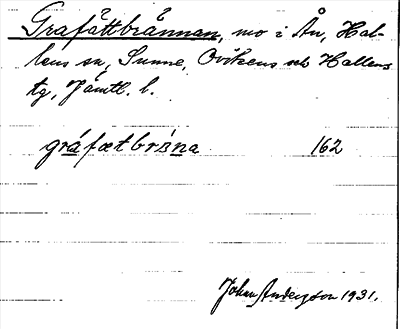 Grafåttbrännan, mo i Ån, Hal-
lens sn, Sunne, Ovikens och Hallens
tg, Jämtl. l.
gráfætbrᵻna 162
Johan Anderson 1931.